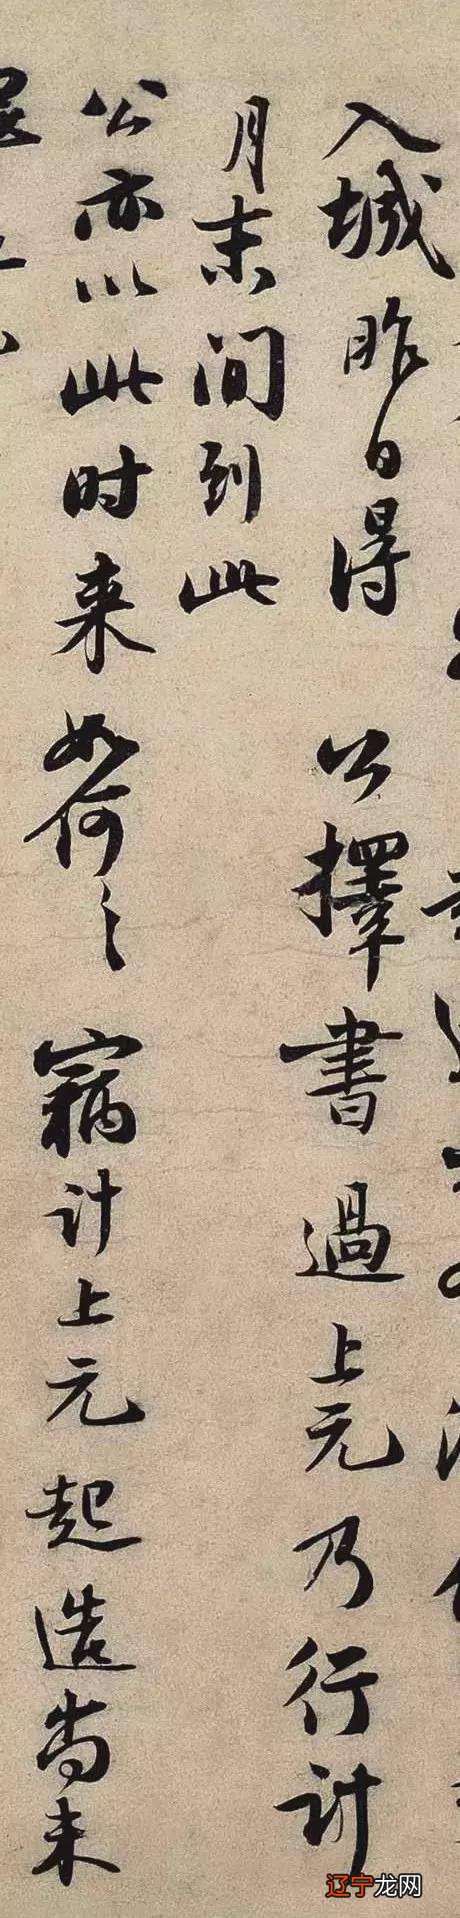 入城昨日得 公擇書過上元乃行計
月末间到此
公亦以此时来如何〻竊計上元起造尚未
辽宁龙网